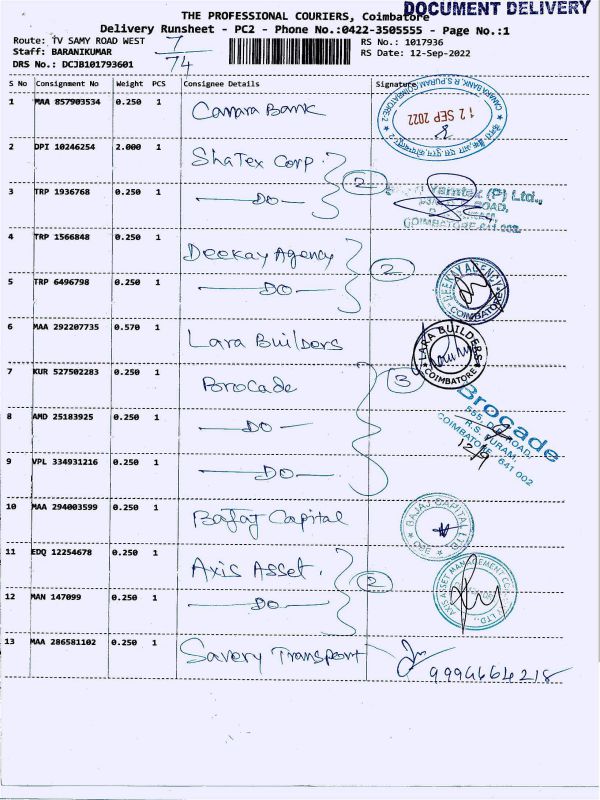 DOCUMENT DELIVERY
THE PROFESSIONAL COURIERS, Coimbatore
Delivery Runsheet - PC2 - Phone No.:0422-3505555 - Page No.:1
Route: TV SAMY ROAD WEST 7/74 RS No.: 1017936
Staff: BARANIKUMAR RS Date: 12-Sep-2022
DRS No.: DCJB101793601
S No Consignment No Weight PCS Consignee Details Signature
1 MAA 857903534 0.250 1 Canara Bank
12 SEP 2022
2 DPI 10246254 2.000 1 Shatex Corp.
2
3 TRP 1936768 0.250 1 DO
Yarntex (P) Ltd.,
ROAD,
COIMBATORE-641 002.
4 TRP 1566848 0.250 1 Deekay Agency
2
5 TRP 6496798 0.250 1 DO
DEEKAY AGENCY
COIMBATORE
6 MAA 292207735 0.570 1 Lara Builders
LARA BUILDERS
COIMBATORE
7 KUR 527502283 0.250 1 Brocade
3
8 AMD 25183925 0.250 1 DO
Brocade
ROAD,
R.S. PURAM,
COIMBATORE 641 002
12/9
9 VPL 334931216 0.250 1 DO
10 MAA 294003599 0.250 1 Bajaj Capital
BAJAJ CAPITAL LTD
11 EDQ 12254678 0.250 1 Axis Asset.
2
12 MAN 147099 0.250 1 DO
AXIS ASSET MANAGEMENT
13 MAA 286581102 0.250 1 Savory Transport
9994664218